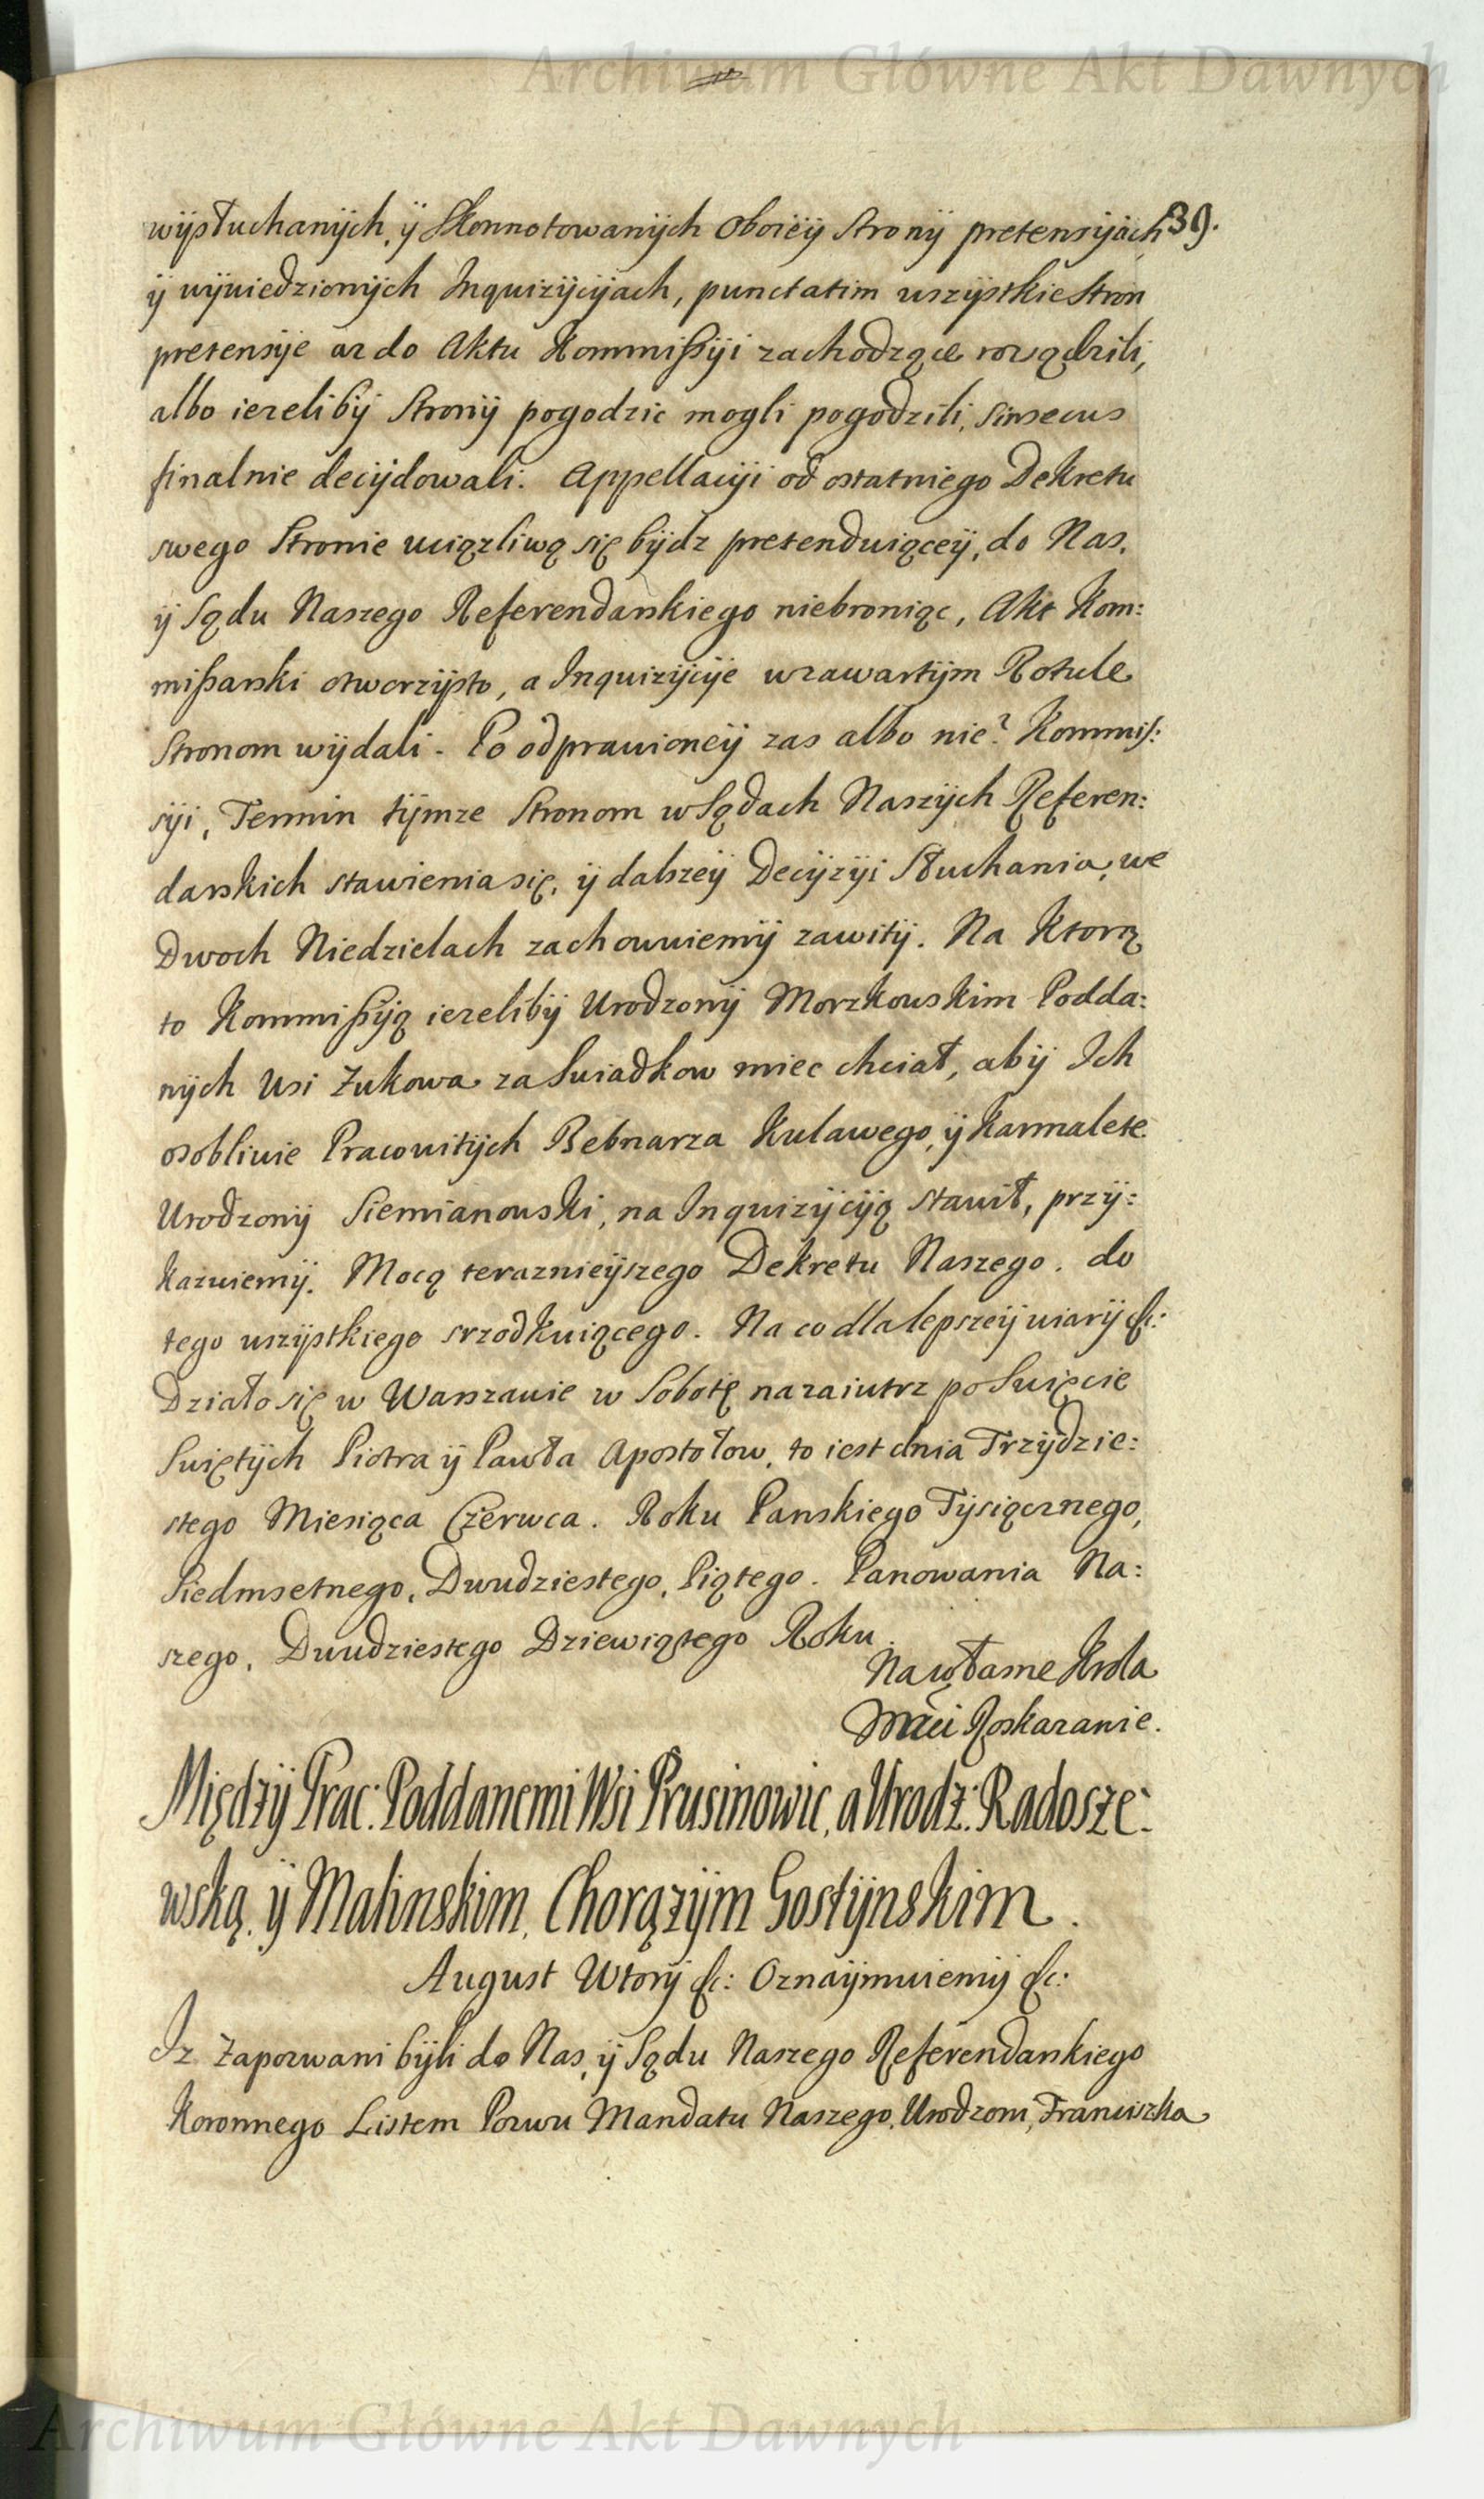 Archiwum Główne Akt Dawnych
39.
wÿsłuchanÿch, ÿ Skonnotowanÿch oboieÿ Stronÿ pretensÿiach,
ÿ wÿwiedzionÿch Inquizÿcÿiach, punctatim wszÿstkie Stron
pretensÿe az do Aktu Kommißÿi zachodzące rozsądzili,
albo iezelibÿ Stronÿ pogodzic mogli pogodzili, sinsecus
finalnie decÿdowali. Appellacÿi od ostatniego Dekretu
swego Stronie uciązliwą się bÿdz pretenduiąceÿ, do Nas,
ÿ Sądu Naszego Referendarskiego niebroniąc, Akt Kom:
mißarski otworzÿsto, a Inquizÿcÿe w zawartÿm Rotule
Stronom wÿdali. Po odprawioneÿ zas albo nie? Kommis:
sÿi, Termin tÿmze Stronom w Sądach Naszÿch Referen:
darskich stawienia się, ÿ dalszeÿ Decÿzÿi Słuchania, we
Dwoch Niedzielach zachowuiemÿ zawitÿ. Na Ktorą
to Kommißÿą iezelibÿ Urodzonÿ Morzkowskim Podda:
nÿch Wsi Zukowa za Swiadkow miec chciał, abÿ Ich
osobliwie Pracowitÿch Bebnarza Kulawego, ÿ Karmalete
Urodzonÿ Siemianowski, na Inquizÿcÿą stawił, przÿ:
kazuiemÿ. Mocą teraznieÿszego Dekretu Naszego. do
tego wszÿstkiego srzodkuiącego. Na co dla lepszeÿ wiarÿ &c:
Działo się w Warszawie w Sobotę nazaiutrz po Swięcie
Swiętÿch Piotra ÿ Pawła Apostołow, to iest dnia Trzÿdzie:
stego Miesiąca Czerwca. Roku Panskiego Tÿsiącznego,
Siedmsetnego, Dwudziestego, Piątego. Panowania Na:
szego, Dwudziestego Dziewiątego Roku.
Na własne Krola
Mści Roskazanie.
Międzÿ Prac: Poddanemi Wsi Prusinowic, a Urodz: Radosze:
wską, ÿ Malinskim, Chorązÿm Gostÿnskim.
August Wtorÿ &c: Oznaÿmuiemÿ &c:
Iz Zapozwani bÿli do Nas, ÿ Sądu Naszego Referendarskiego
Koronnego Listem Pozwu Mandatu Naszego, Urodzoni, Franciszka
Archiwum Główne Akt Dawnych